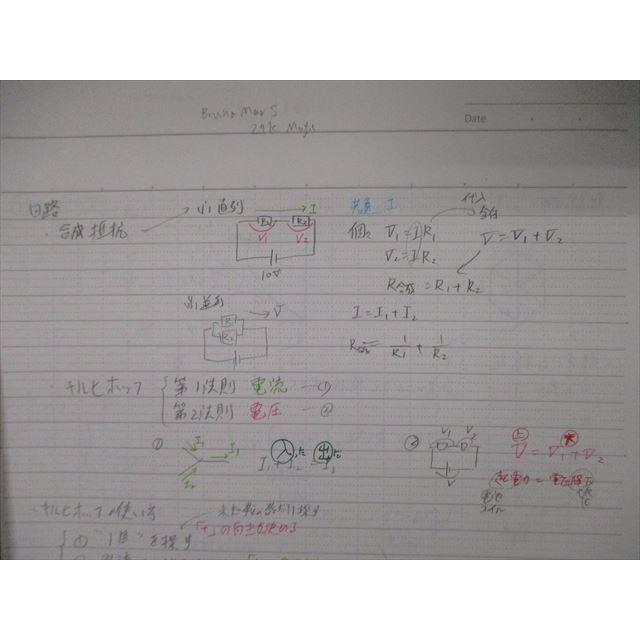 Bruno Mars
24k Magic
Date
回路
・合成抵抗
直列
I
R1 R2
V1 V2
10V
共通 I
個々 V1 = I R1
V2 = I R2
代入
V = V1 + V2
R合成 = R1 + R2
並列
V
I = I1 + I2
R合成 = 1/R1 + 1/R2
・キルヒホッフ
第1法則 電流 ―①
第2法則 電圧 ―②
①
I1
I2
I3
入 出
I1 + I2 = I3
②
V1 V2
V
上 大
V = V1 + V2
起電力 = 電圧降下
電池
コイル
・キルヒホッフの使い方
「+」の向きを決める
① を探す